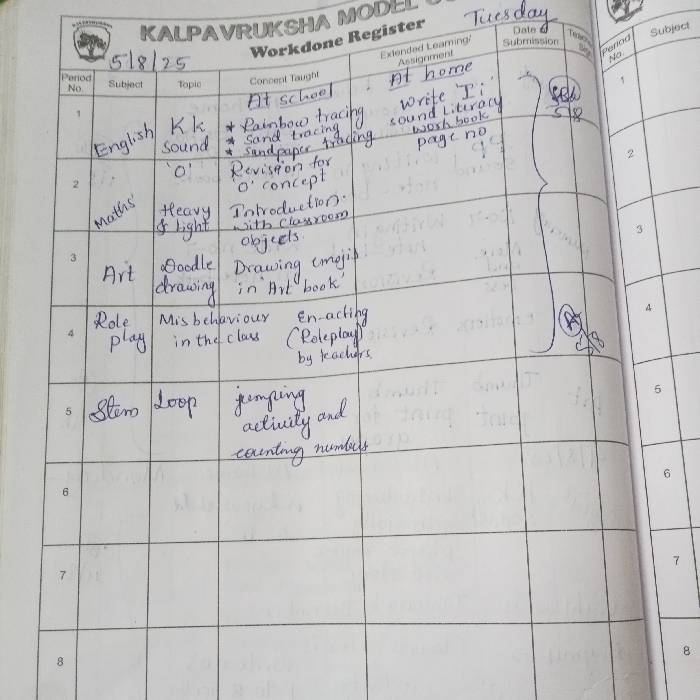 KALPAVRUKSHA MODEL
Tuesday
Workdone Register
5/8/25
Period No. Subject Topic Concept Taught Extended Learning/ Assignment Date of Submission
At school At home
1 English Kk sound * Rainbow tracing
* Sand tracing
* Sandpaper tracing
Write 'Ii'
sound Literacy
work book
page no
2 Maths 'O' Revision for
'O' concept
Heavy & Light Introduction
with classroom
objects.
3 Art Doodle drawing Drawing emojis
in 'Art book'
4 Role play Misbehaviour in the class En-acting
(Roleplay)
by teachers
5 Stem Loop jumping
activity and
counting numbers
6
7
8
Period No. Subject
1
2
3
4
5
6
7
8